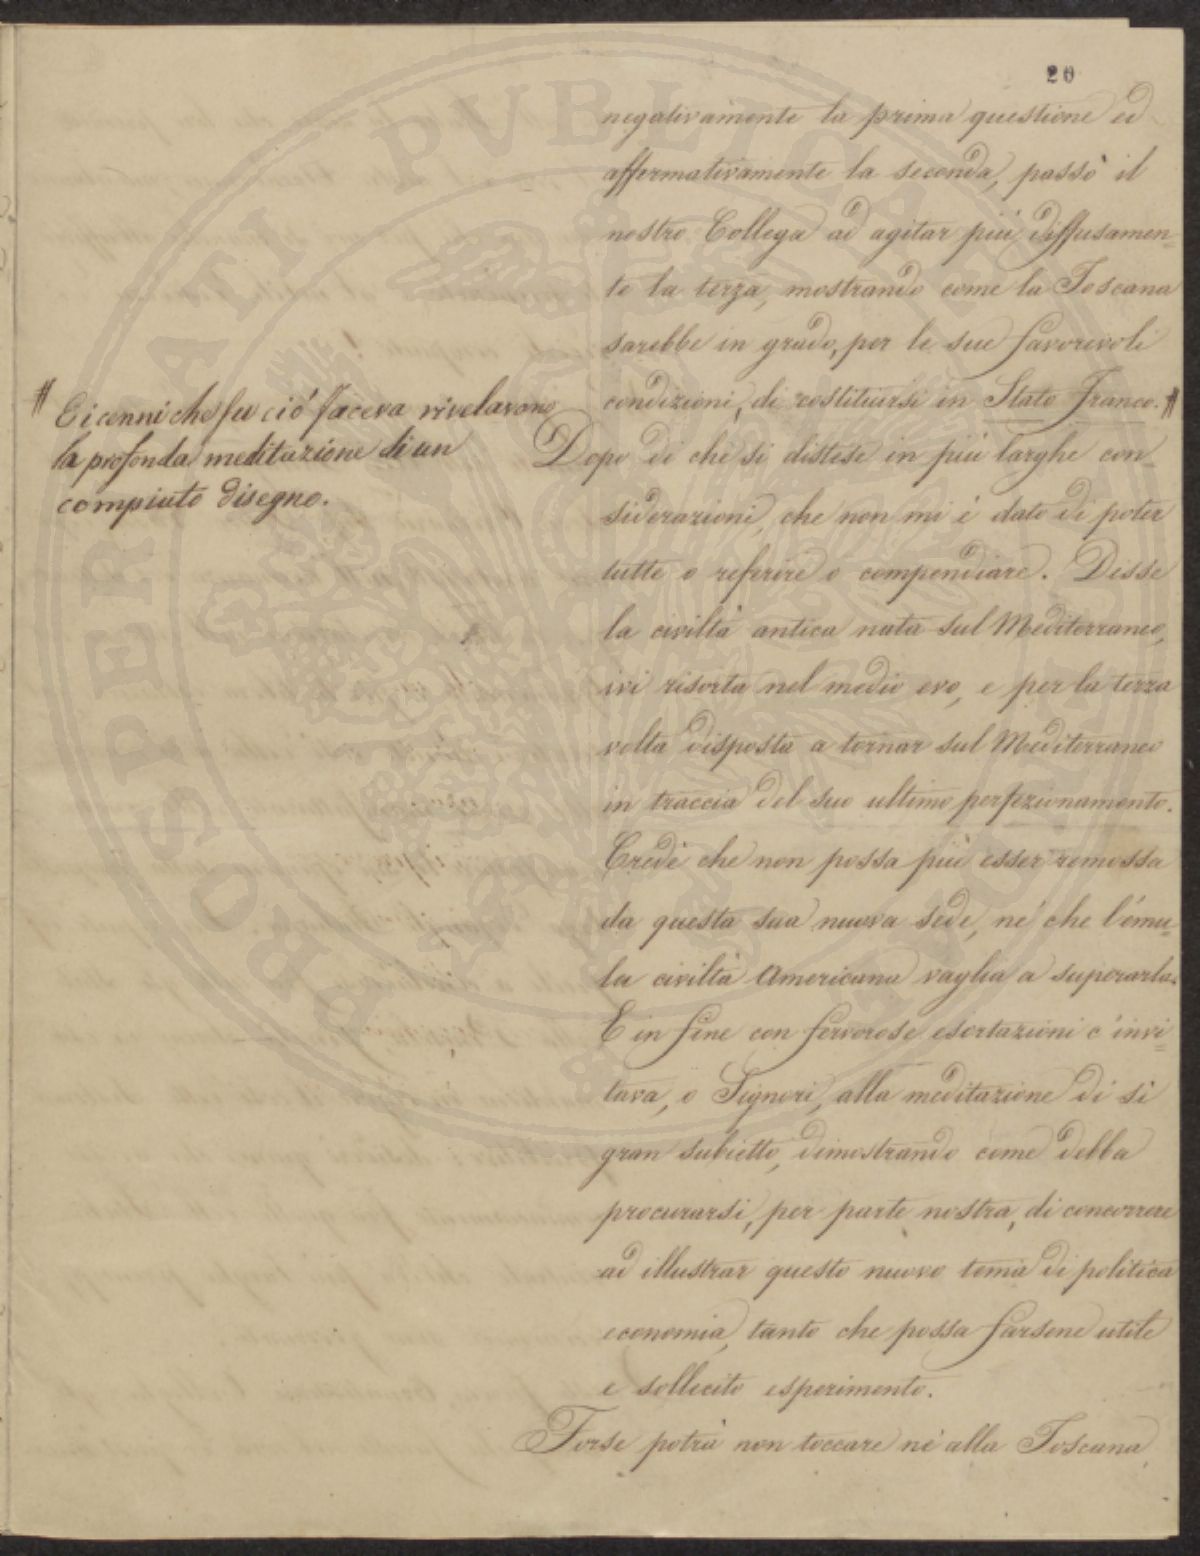 20
negativamente la prima questione ed
affermativamente la seconda, passò il
nostro Collega ad agitar più diffusamen=
te la terza, mostrando come la Toscana
sarebbe in grado, per le sue favorevoli
condizioni, di costituirsi in Stato Franco. #
# E i cenni che su ciò faceva rivelavano
la profonda meditazione di un
compiuto disegno.
Dopo di che si distese in più larghe con=
siderazioni, che non mi è dato di poter
tutte o referire o compendiare. Disse
la civiltà antica nata sul Mediterraneo,
ivi risorta nel medio evo, e per la terza
volta disposta a tornar sul Mediterraneo
in traccia del suo ultimo perfezionamento.
Crede che non possa più esser remossa
da questa sua nuova sede, né che l'emu=
la civiltà Americana vaglia a superarla.
E in fine con fervorose esortazioni c'invi=
tava, o Signori, alla meditazione di sì
gran subietto, dimostrando come debba
procurarsi, per parte nostra, di concorrere
ad illustrar questo nuovo tema di politica
economia, tanto che possa farsene utile
e sollecito esperimento.
Forse potrà non toccare nè alla Toscana,
PROSPERITATI PVBLICAE